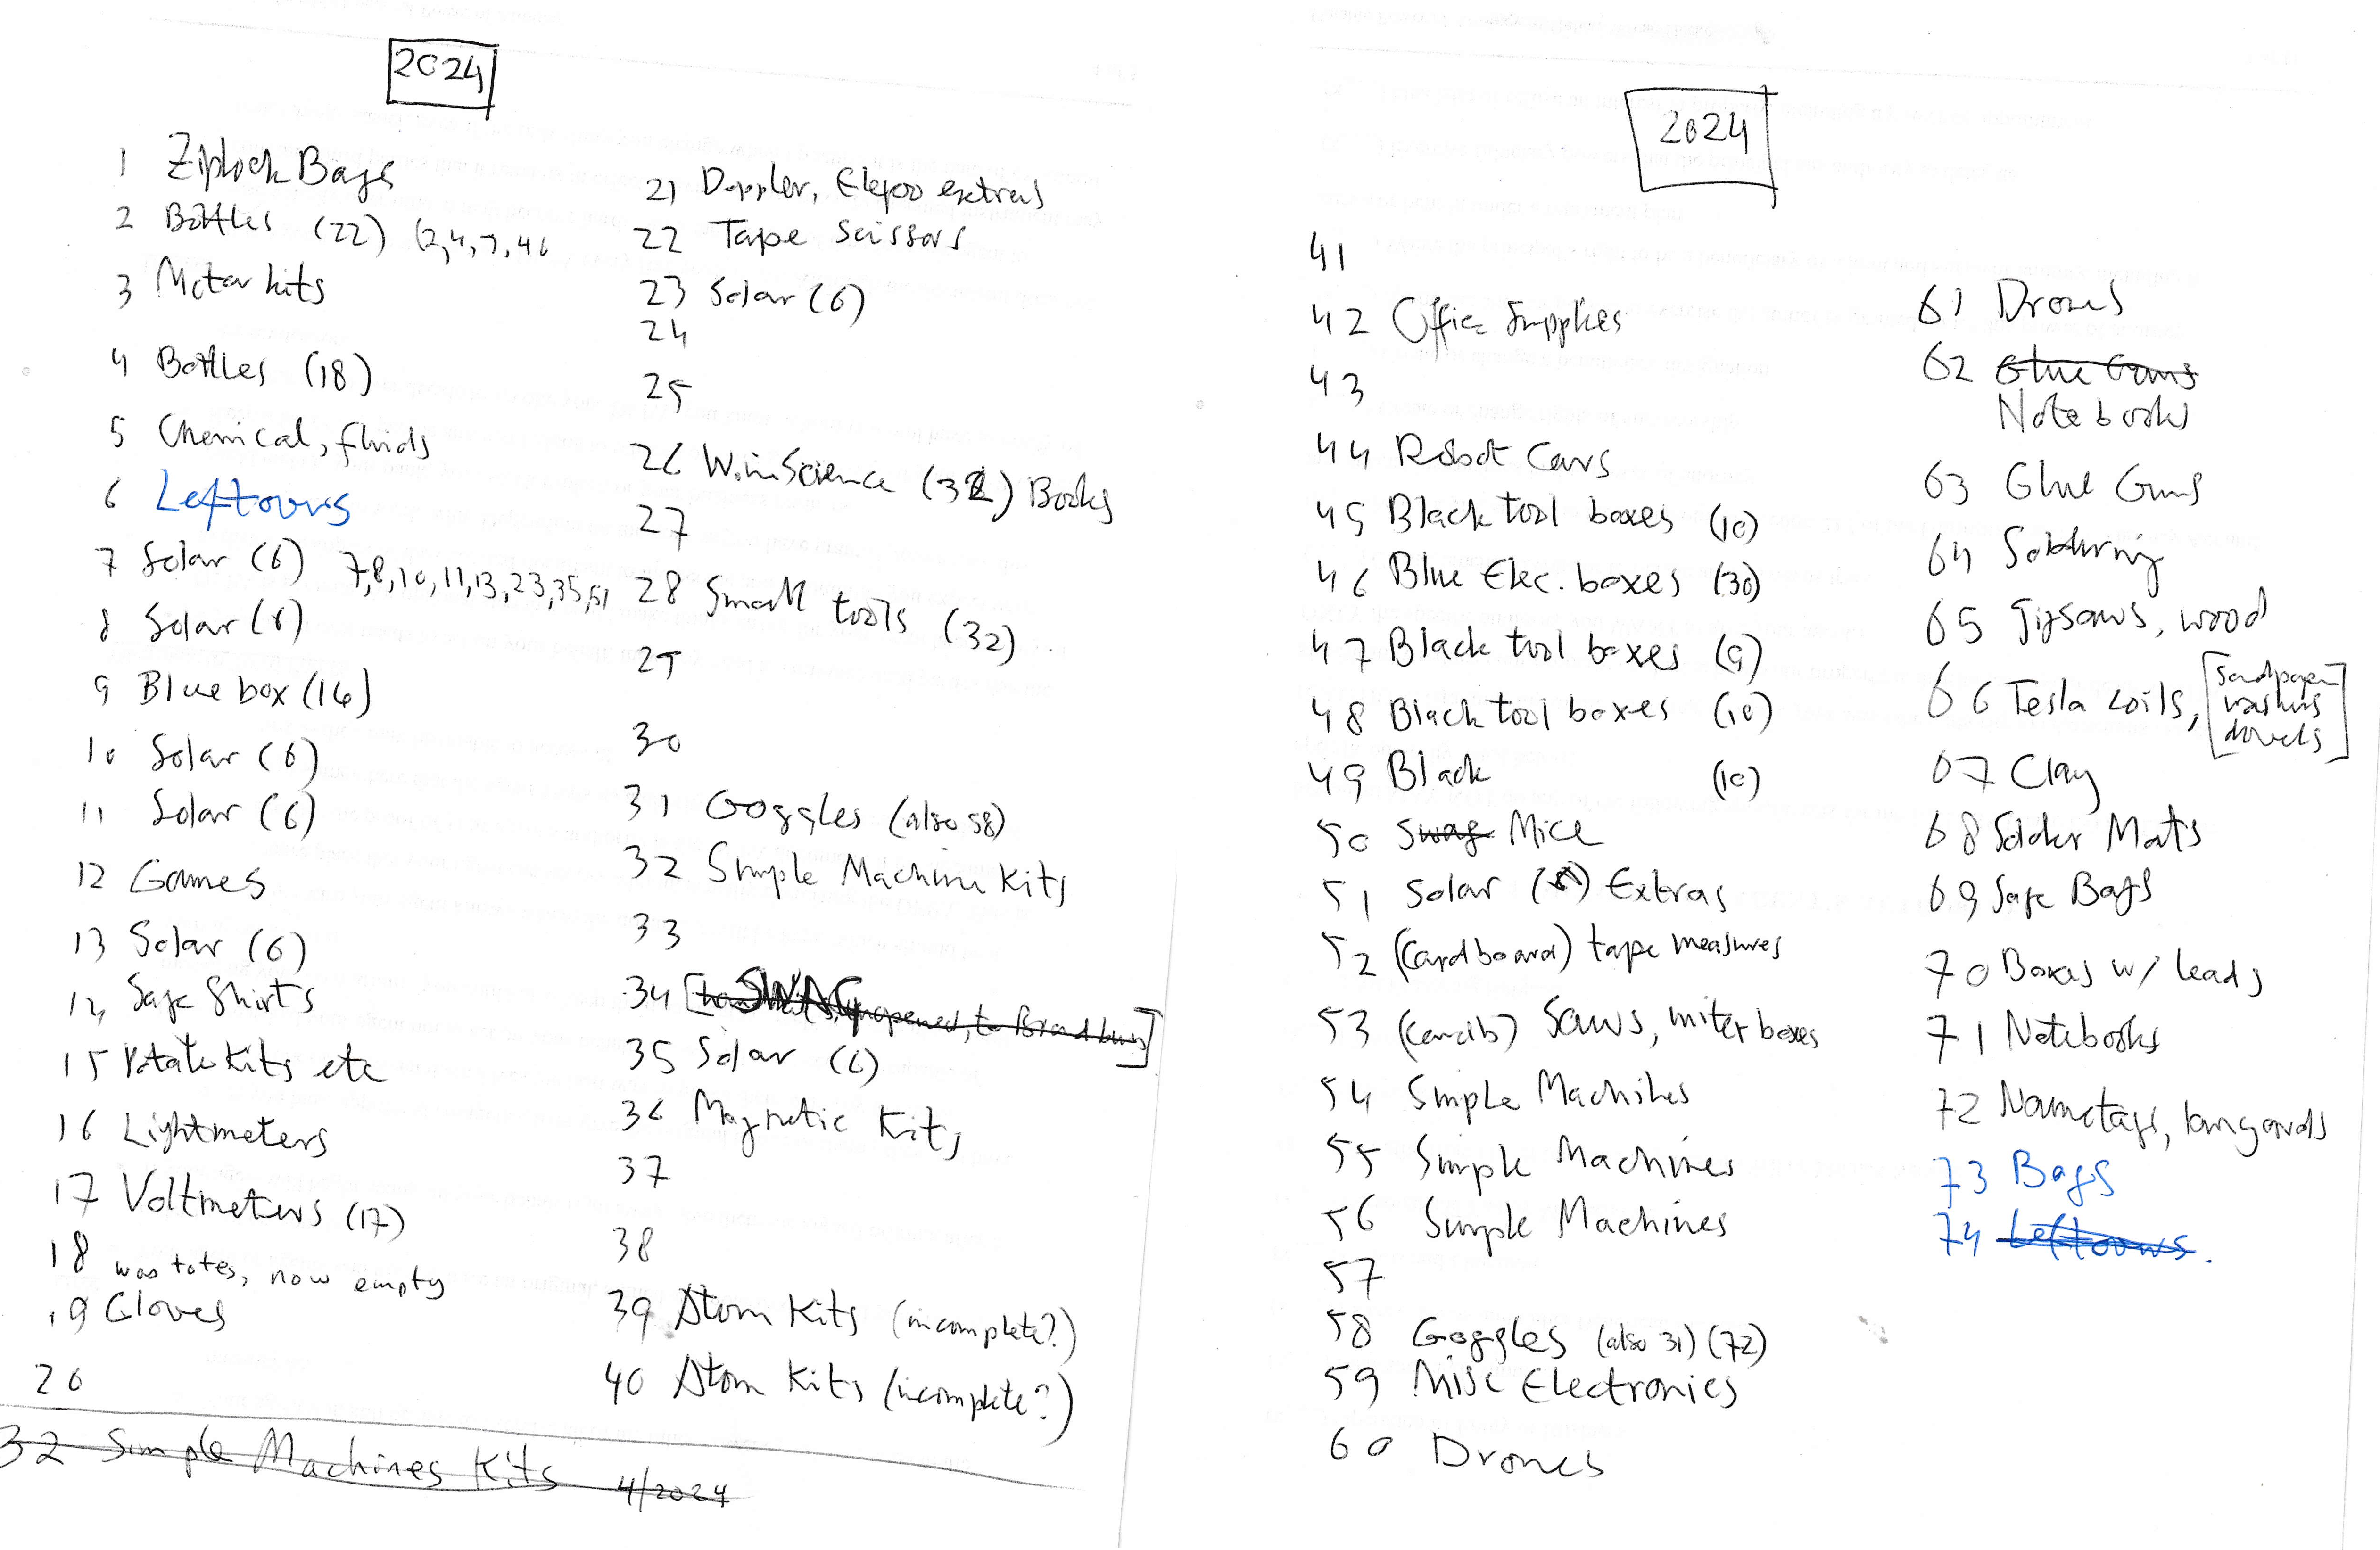 2024
1 Ziplock Bags
2 Bottles (22) (2,4,7,46
3 Motor kits
4 Bottles (18)
5 Chemical, fluids
6 Leftovers
7 Solar (6) 7,8,10,11,13,23,35,51
8 Solar (6)
9 Blue box (16)
10 Solar (6)
11 Solar (6)
12 Games
13 Solar (6)
14 Sage Shirts
15 Potato Kits etc
16 Lightmeters
17 Voltmeters (17)
18 was totes, now empty
19 Gloves
20
32 Simple Machines Kits 4/2024
21 Doppler, Elegoo extras
22 Tape Scissors
23 Solar (6)
24
25
26 WiinScience (32) Books
27
28 Small tools (32)
29
30
31 Goggles (also 58)
32 Simple Machine Kits
33
34 [SWAG unopened, to Bradburn]
35 Solar (6)
36 Magnetic Kits
37
38
39 Atom Kits (incomplete?)
40 Atom Kits (incomplete?)
2024
41
42 Office Supplies
43
44 Robot Cars
45 Black tool boxes (10)
46 Blue Elec. boxes (30)
47 Black tool boxes (9)
48 Black tool boxes (10)
49 Black (10)
50 Swag Mice
51 Solar Extras
52 (Cardboard) tape measures
53 Saws, miter boxes
54 Simple Machines
55 Simple Machines
56 Simple Machines
57
58 Goggles (also 31) (72)
59 Misc Electronics
60 Drones
61 Drones
62 Glue Guns
Notebooks
63 Glue Guns
64 Soldering
65 Jigsaws, wood
66 Tesla coils, [sandpaper
washers
dowels]
67 Clay
68 Solder Mats
69 Sage Bags
70 Boxes w/ leads
71 Notebooks
72 Nametags, lanyards
73 Bags
74 Leftovers.